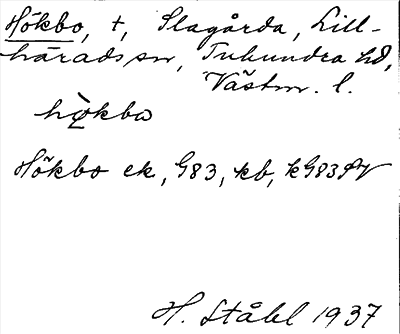 Hökbo, t, Slagårda, Lill-
häradssn, Tuhundra hd,
Västm. l.
hökbo
Hökbo ek, G83, kb, kG83
H. Ståhl 1937